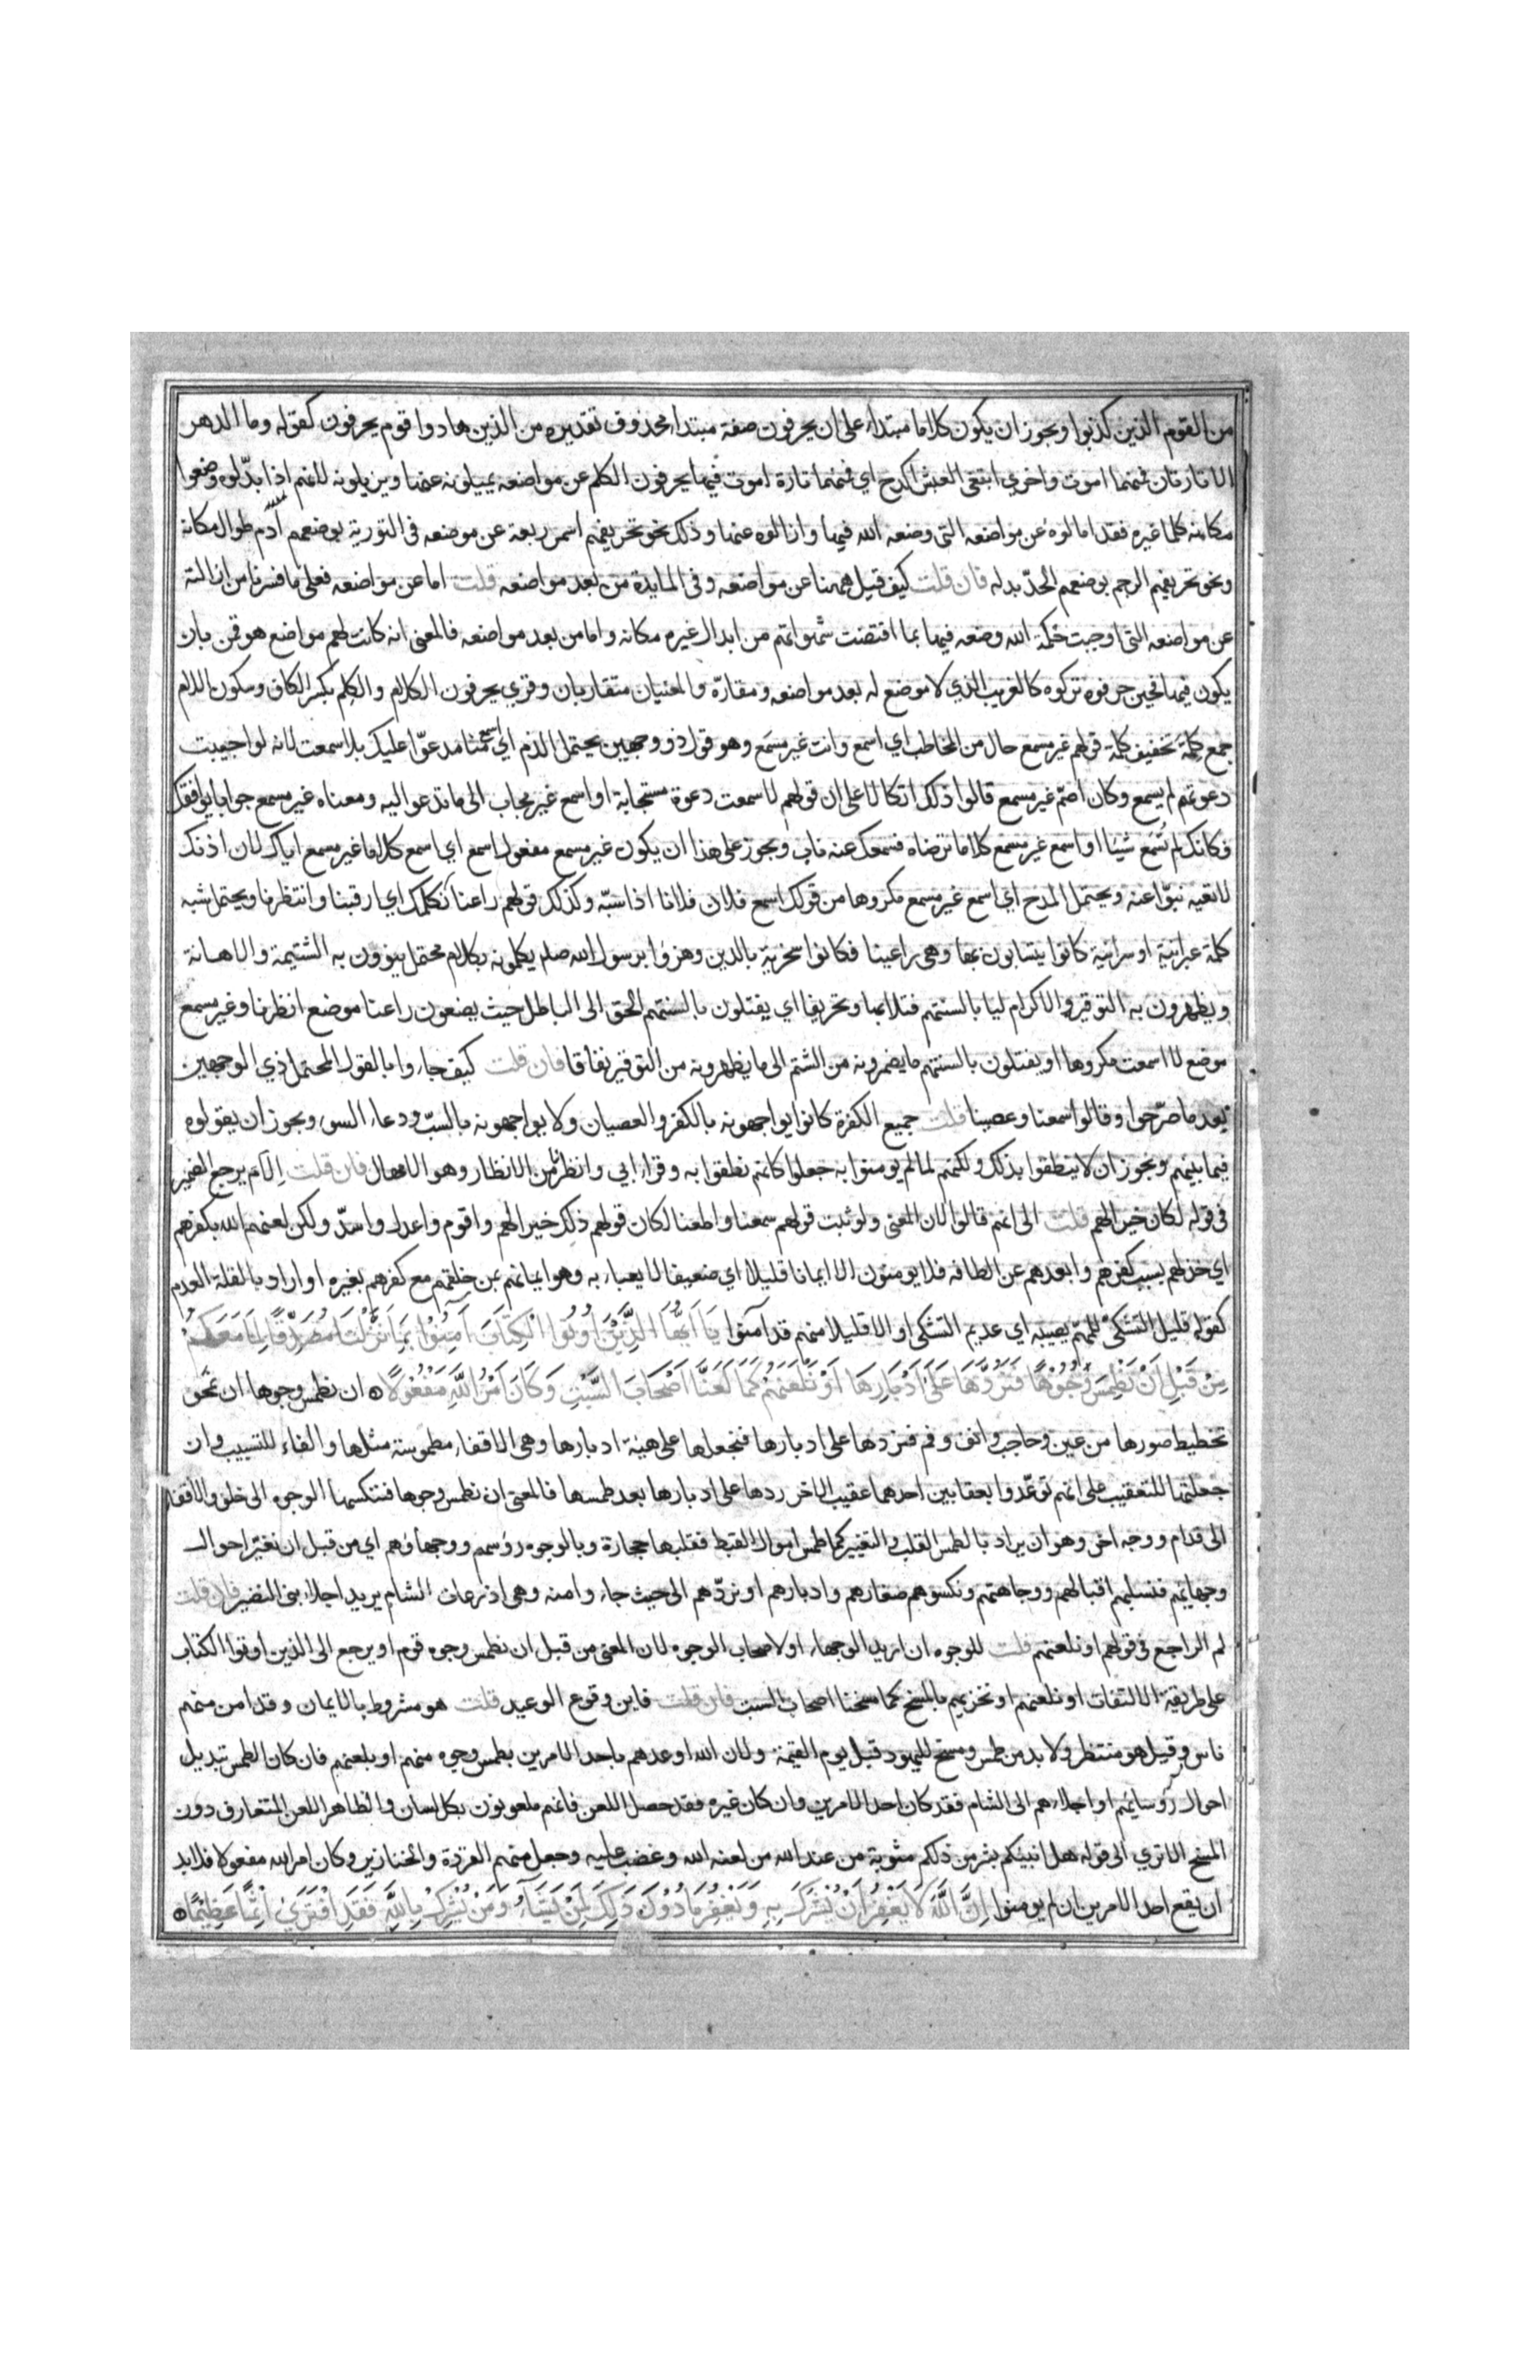 من القوم الذين كذبوا ويجوز ان يكون كلاما مبتدأ على ان يحرفون صفة مبتدأ محذوف تقديره من الذين هادوا قوم يحرفون كقوله وما الدهر
الا تارتان فمنهما اموت واخرى ابتغى العيش اكدح اي فمنهما تارة اموت فيها يحرفون الكلم عن مواضعه يميلونه عنها ويزيلونه لانهم اذا بدّلوه وضعوا
مكانه كلما غيره فقد امالوه عن مواضعه التى وضعه الله فيها وازالوه عنها وذلك نحو تحريفهم اسمر ربعة عن موضعه فى التورية بوضعهم آدم طوال مكانه
ونحو تحريفهم الرجم بوضعهم الحدّ بدله فان قلت كيف قيل ههنا عن مواضعه وفى المايدة من بعد مواضعه قلت اما عن مواضعه فعلى ما فسرنا من ازالته
عن مواضعه التى اوجبت حكمة الله وضعه فيها بما اقتضت شهواتهم من ابدال غيره مكانه واما من بعد مواضعه فالمعنى انه كانت لهم مواضع هو قمن بان
يكون فيها فحين حرفوه تركوه كالغريب الذي لا موضع له بعد مواضعه ومقارّه والمعنيان متقاربان وقري يحرفون الكلام والكِلم بكسر الكاف وسكون اللام
جمع كِلمة تخفيف كَلمة قولهم غير مسمع حال من المخاطب اي اسمع وانت غير مسمَع وهو قول ذو وجهين يحتمل الذم اي اسمع منا مدعوّا عليك بلا سمعت لانه لو اجيبت
دعوتهم لم يسمع وكان اصمّ غير مسمع قالوا ذلك اتكالا على ان قولهم لا سمعت دعوة مستجابة او اسمع غير مجاب الى ما تدعو اليه ومعناه غير مسمع جوابا يوافقك
فكانك لم تُسمَع شيئا او اسمع غير مسمع كلاما ترضاه فسمعك عنه ناب ويجوز على هذا ان يكون غير مسمع مفعول اسمع اي اسمع كلاما غير مسمع اياك لان اذنك
لا تعيه نبوّا عنه ويحتمل المدح اي اسمع غير مسمع مكروها من قولك اسمع فلان فلانا اذا سبّه وكذلك قولهم راعنا نكلمك اي ارقبنا وانتظرنا ويحتمل شبه
كلمة عبرانيّة او سريانيّة كانوا يتسابون بها وهى راعينا فكانوا سخرية بالدين وهزؤا برسول الله صلم يكلمونه بكلام محتمل ينوون به الشتيمة والاهانة
ويظهرون به التوقير والاكرام ليا بالسنتهم فتلا بها وتحريفا اي يفتلون بالسنتهم الحق الى الباطل حيث يضعون راعنا موضع انظرنا وغير مسمع
موضع لا اسمعت مكروها او يفتلون بالسنتهم ما يضمرونه من الشتم الى ما يظهرونه من التوقير نفاقا فان قلت كيف جاءوا بالقول المحتمل ذي الوجهين
بعد ما صرّحوا وقالوا سمعنا وعصينا قلت جميع الكفرة كانوا يواجهونه بالكفر والعصيان ولا يواجهونه بالسبّ ودعاء السوء ويجوز ان يقولوه
فيما بينهم ويجوز ان لا ينطقوا بذلك ولكنهم لما لم يومنوا به جعلوا كانهم نطقوا به وقرأ ابي وانظرنا من الانظار وهو الامهال فان قلت اِلام يرجع الضمير
فى قوله لكان خيرا لهم قلت الى انهم قالوا لان المعنى ولو ثبت قولهم سمعنا واطعنا لكان قولهم ذلك خيرا لهم واقوم واعدل واسدّ ولكن لعنهم الله بكفرهم
اي خذلهم بسبب كفرهم وابعدهم عن الطافه فلا يومنون الا ايمانا قليلا اي ضعيفا لا يعبا به وهو ايمانهم بمن خلقهم مع كفرهم بغيره او اراد بالقلة العدم
كقوله قليل التشكى للمهمّ يصيبه اي عديم التشكى او الا قليلا منهم قد آمنوا يَا اَيُّهَا الَّذِيْنَ اُوْتُوا الْكِتَابَ آمِنُوْا بِمَا نَزَّلْنَا مُصَدِّقًا لِمَا مَعَكُمْ
مِنْ قَبْلِ اَنْ نَطْمِسَ وُجُوْهًا فَنَرُدَّهَا عَلَى اَدْبَارِهَا اَوْ نَلْعَنَهُمْ كَمَا لَعَنَّا اَصْحَابَ السَّبْتِ وَكَانَ اَمْرُ اللهِ مَفْعُوْلًا ان نطمس وجوها ان نمحو
تخطيط صورها من عين وحاجب وانف وفم فنردها على ادبارها فنجعلها على هيئة ادبارها وهى الاقفاء مطموسة مثلها والفاء للتسبيب وان
جعلتها للتعقيب على انهم توعّدوا بعقابين احدهما عقيب الاخر ردها على ادبارها بعد طمسها فالمعنى ان نطمس وجوها فننكسها الوجوه الى خلف والاقفاء
الى قدام ووجه اخر وهو ان يراد بالطمس القلب والتغيير كما طمس اموال القبط فقلبها حجارة وبالوجوه رؤسهم ووجهاؤهم اي من قبل ان نغيّر احوال
وجهائهم فنسلبهم اقبالهم ووجاهتهم ونكسوهم صغارهم وادبارهم او نردّهم الى حيث جاءوا منه وهى اذرعات الشام يريد اجلاء بنى النضير فان قلت
لم الراجع فى قولهم او نلعنهم قلت للوجوه ان اريد الوجهاء او لاصحاب الوجوه لان المعنى من قبل ان نطمس وجوه قوم او يرجع الى الذين اوتوا الكتاب
على طريقة الالتفات او نلعنهم او نخزيهم بالمسخ كما مسخنا اصحاب السبت فان قلت فاين وقوع الوعيد قلت هو مشروط بالايمان وقد امن منهم
ناس وقيل هو منتظر ولا بد من طمس ومسخ لليهود قبل يوم القيمة ولان الله اوعدهم باحد الامرين بطمس وجوه منهم او بلعنهم فان كان الطمس تبديل
احوال رؤسائهم او اجلاءهم الى الشام فقد كان احد الامرين وان كان غيره فقد حصل اللعن فانهم ملعونون بكل لسان والظاهر اللعن المتعارف دون
المسخ الا ترى الى قوله هل انبئكم بشر من ذلكم مثوبة من عند الله من لعنه الله وغضب عليه وجعل منهم القردة والخنازير وكان امر الله مفعولا فلا بد
ان يقع احد الامرين ان لم يومنوا اِنَّ اللَّهَ لَا يَغْفِرُ اَنْ يُشْرَكَ بِهِ وَيَغْفِرُ مَا دُوْنَ ذَلِكَ لِمَنْ يَشَآءُ وَمَنْ يُشْرِكْ بِاللَّهِ فَقَدِ افْتَرَىٰ اِثْمًا عَظِيْمًا